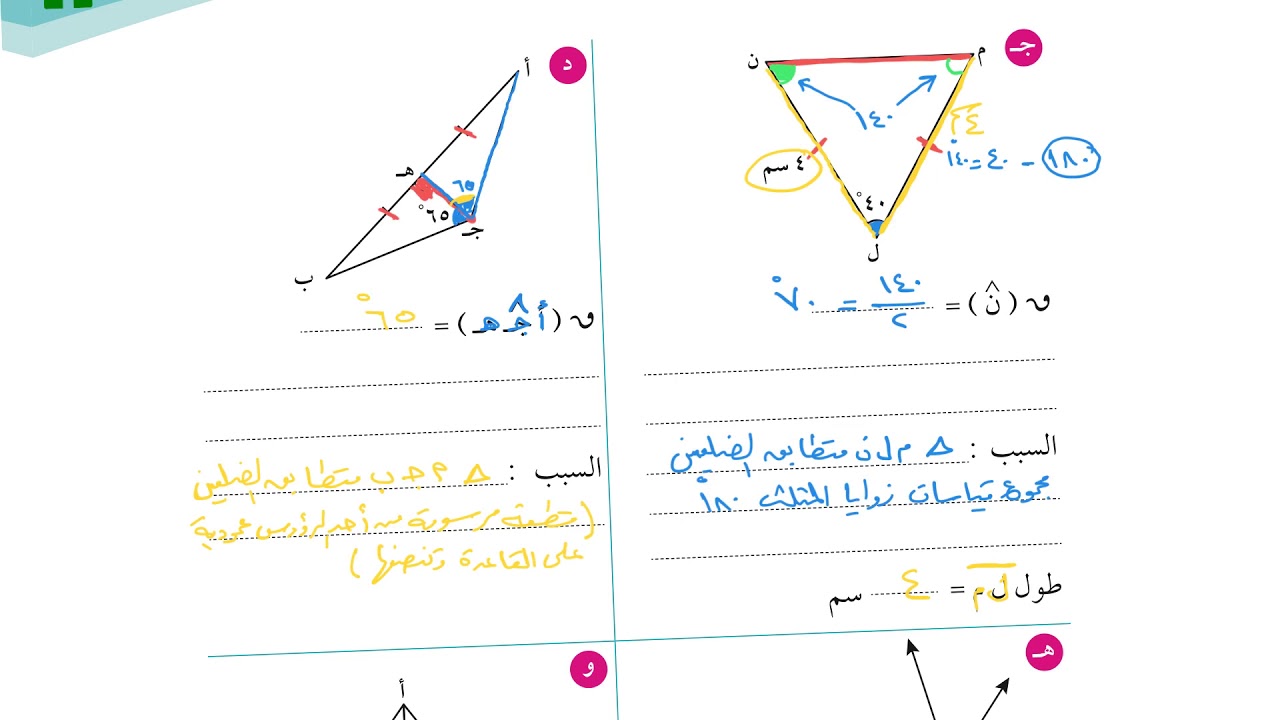 جـ
ن
م
١٤٠
٤ سم
٤
١٨٠° - ٤٠ = ١٤٠°
٤٠°
ل
ق (ن) = ١٤٠ / ٢ = ٧٠°
السبب : △ م ل ن متطابق الضلعين
مجموع قياسات زوايا المثلث ١٨٠°
طول ل م = ٤ سم
د
أ
هـ
٦٥
٦٥°
جـ
ب
ق (أ جـ هـ) = ٦٥°
السبب : △ م جـ ب متطابق الضلعين
(قطعة مرسومة من أحد الرؤوس عمودية
على القاعدة وتنصفها)
هـ
و
أ